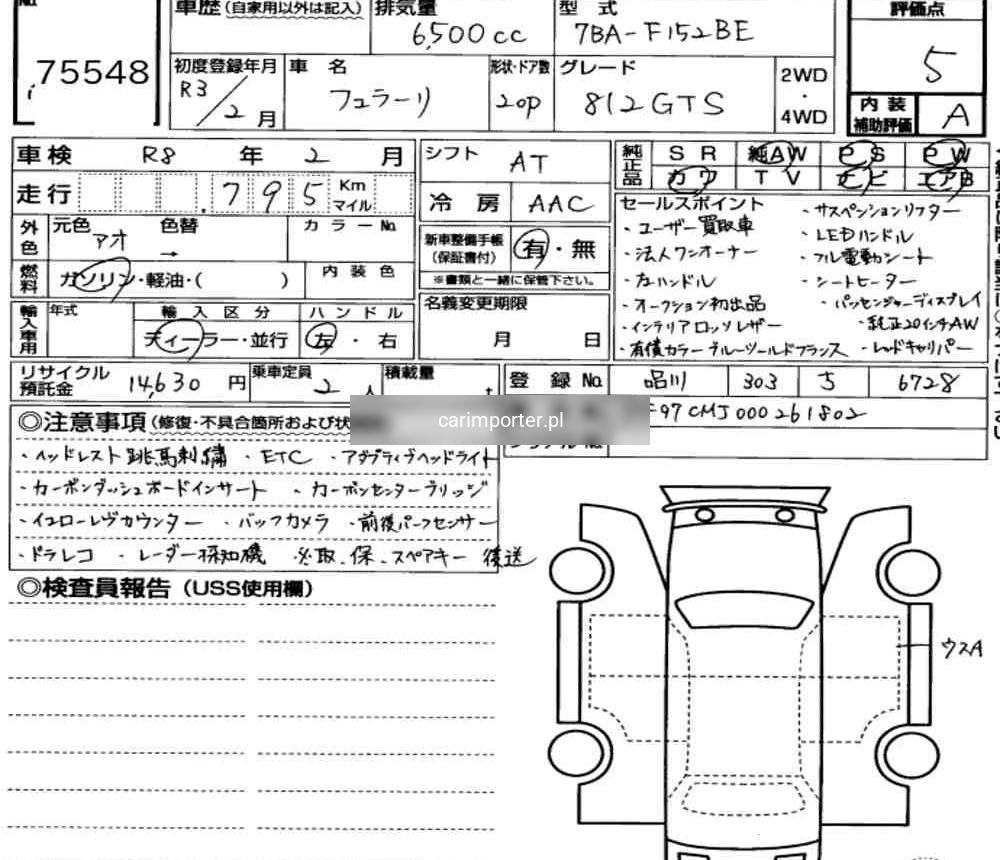 No.
75548
車歴(自家用以外は記入) 排気量 6,500cc 型式 7BA-F152BE 評価点 5
初度登録年月 R3/2月 車名 フェラーリ 形状・ドア数 2op グレード 812GTS 2WD・4WD 内装補助評価 A
車検 R8年2月 シフト AT 純正品 SR 純AW PS PW
走行 .795 Km マイル 冷房 AAC カワ TV ナビ エアB
外色 元色 アオ 色替 → カラーNo.
新車整備手帳(保証書付) 有・無
※書類と一緒に保管下さい。
燃料 ガソリン・軽油・( ) 内装色
名義変更期限 月 日
輸入車用 年式 輸入区分 ディーラー・並行 ハンドル 左・右
セールスポイント
・ユーザー買取車
・法人ワンオーナー
・左ハンドル
・オークション初出品
・インテリアロッソレザー
・有償カラー ブルーツールドフランス
・サスペンションリフター
・LEDハンドル
・フル電動シート
・シートヒーター
・パッセンジャーディスプレイ
・純正20インチAW
・レッドキャリパー
リサイクル預託金 14,630円 乗車定員 2人 積載量 t 登録No. 品川 303 ち 6728
F97CMJ000261802
carimporter.pl
◎注意事項(修復・不具合箇所および状
・ヘッドレスト跳馬刺繍 ・ETC ・アダプティブヘッドライト
・カーボンダッシュボードインサート ・カーボンセンターブリッジ
・イエローレヴカウンター ・バックカメラ ・前後パークセンサー
・ドラレコ ・レーダー探知機 ※取、保、スペアキー 後送
◎検査員報告(USS使用欄)
ウスA